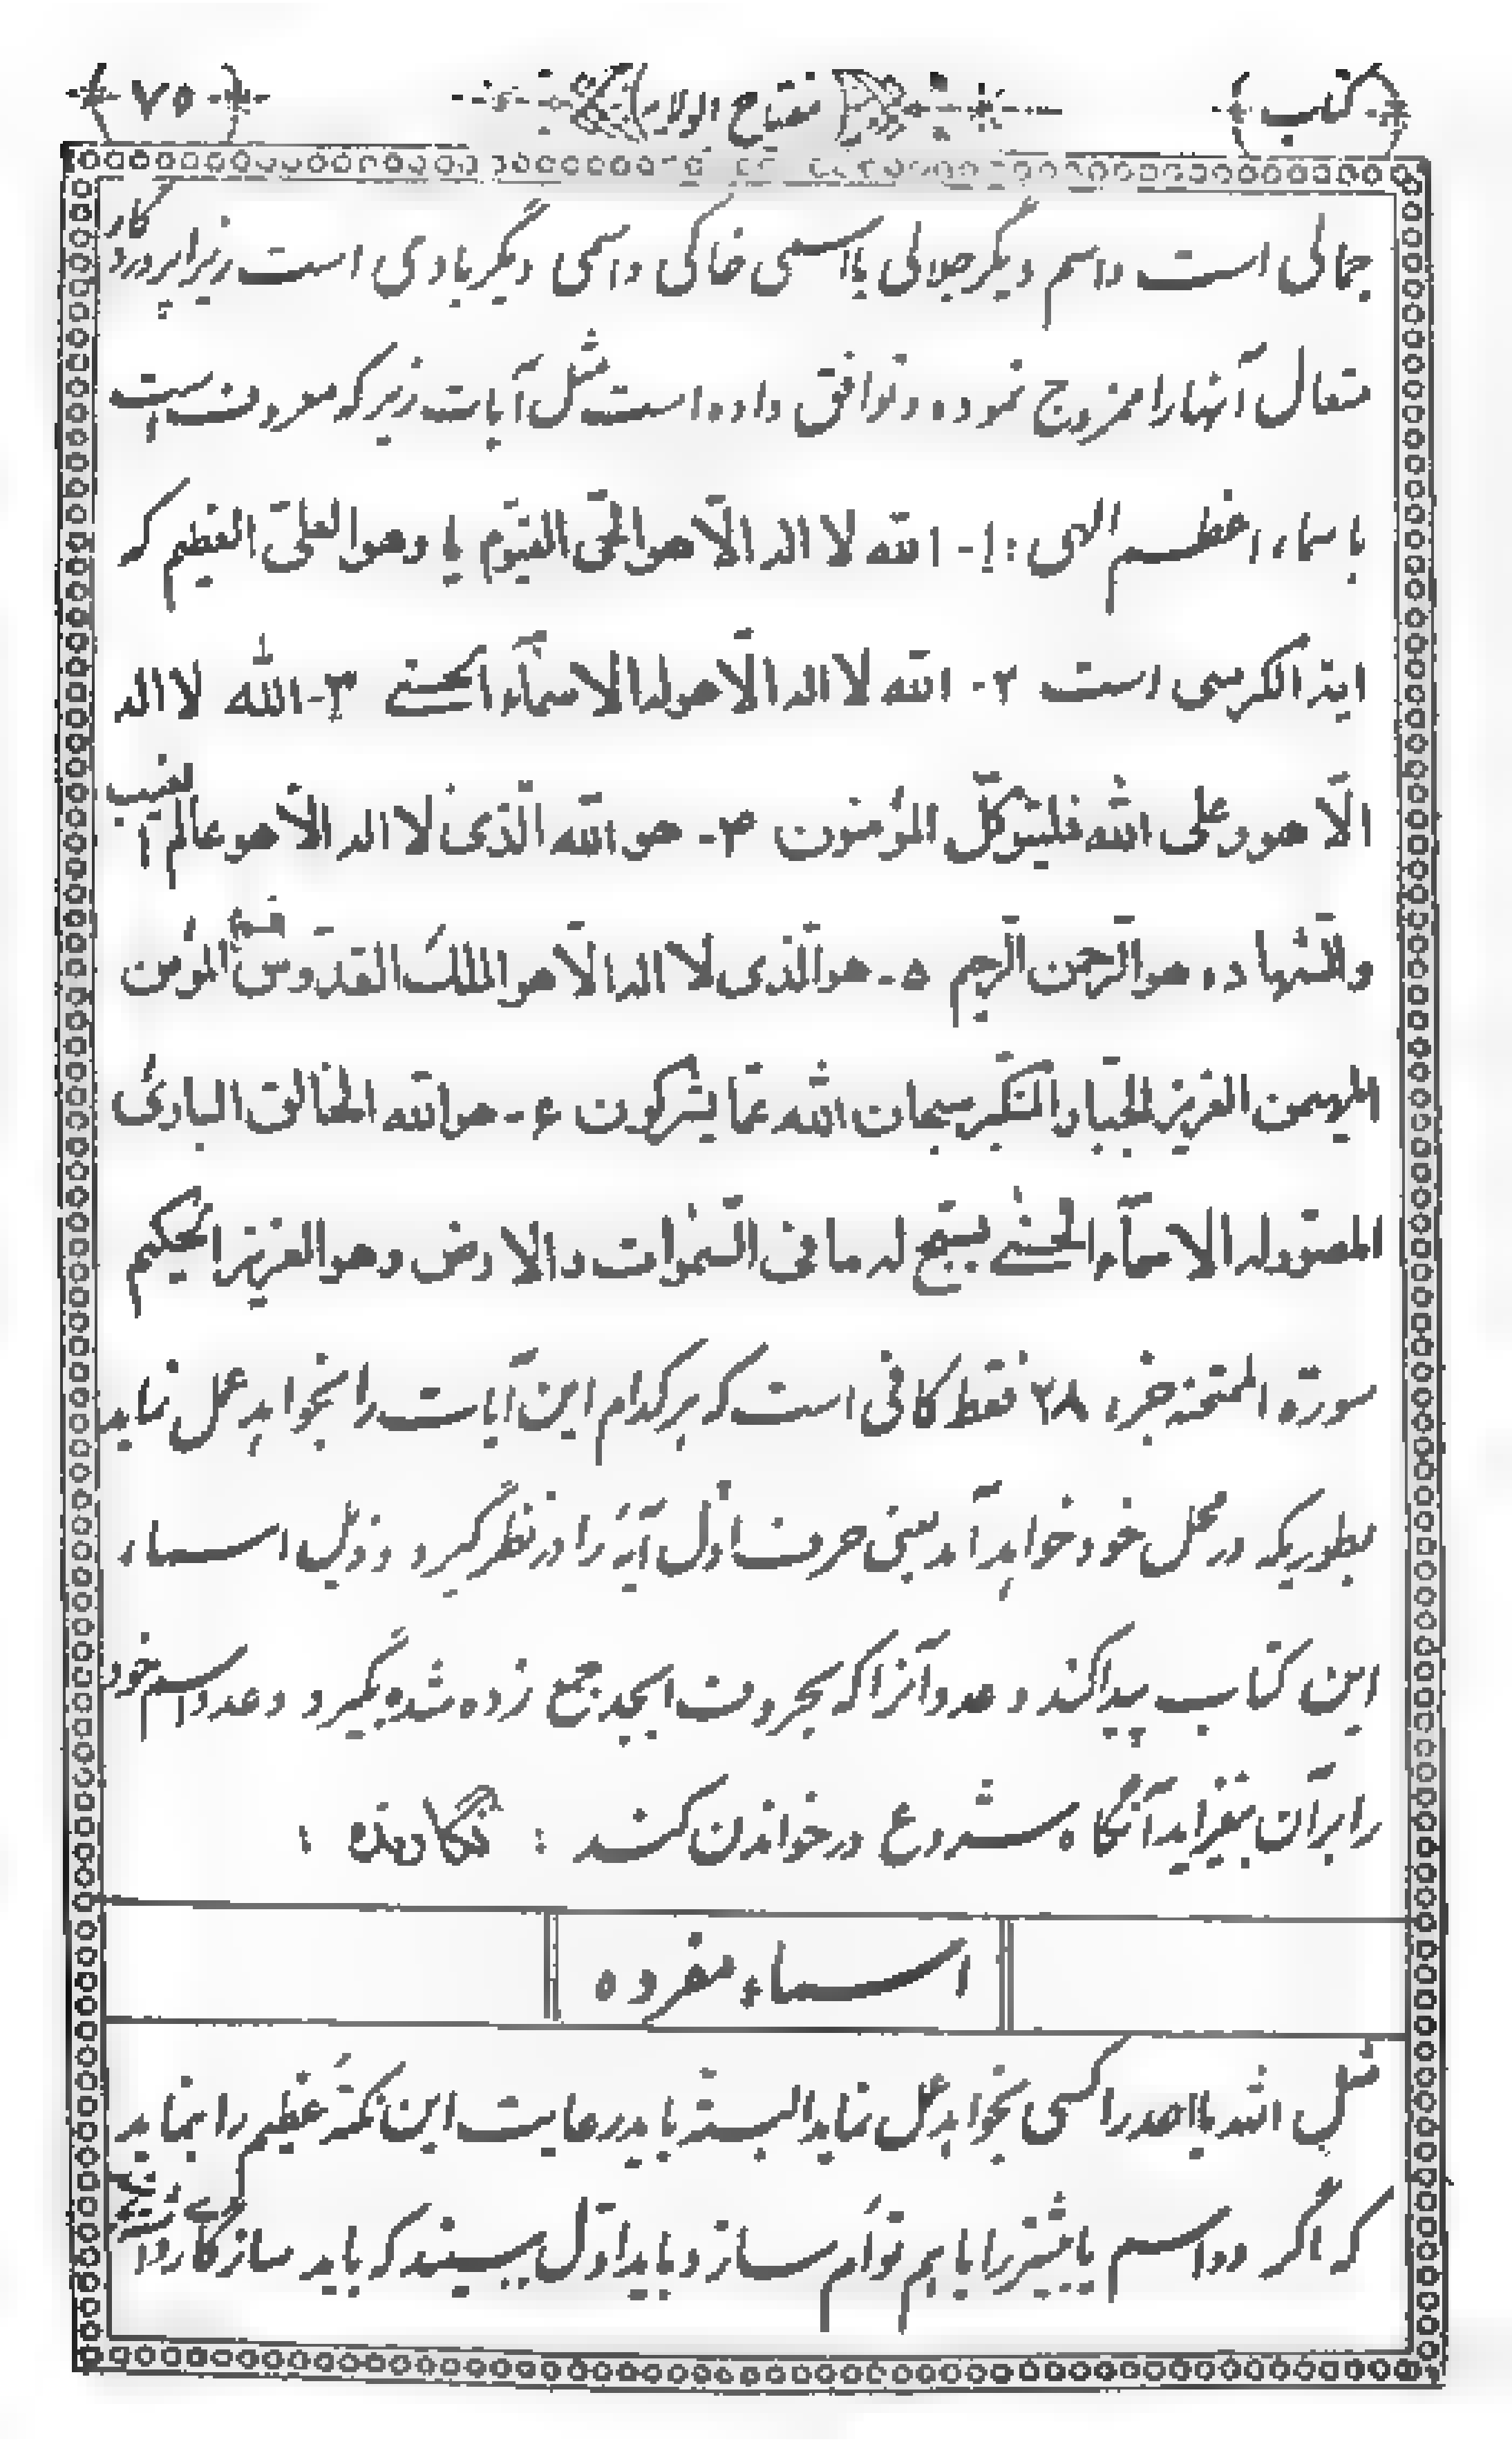 کتاب مفتاح الولاء ۷۵
جمالی است و اسم دیگر جلالی یا اسمی خاکی و اسمی دیگر بادی است زیرا پروردگار
متعال آنها را ممزوج نموده و توافق داده است مثل آیات زیر که معروف است
باسماء اعظم الهی : ۱- الله لا اله الّا هو الحیّ القیّوم یا و هو العلیّ العظیم که
ایة الکرسی است ۲- الله لا اله الّا هو له الاسمآء الحسنی ۳- الله لا اله
الّا هو و علی الله فلیتوکّل المؤمنون ۴- هو الله الّذی لا اله الّا هو عالم الغیب
والشّهاده هو الرّحمن الرّحیم ۵- هو الّذی لا اله الّا هو الملک القدّوس المؤمن
المهیمن العزیز الجبّار المتکبّر سبحان الله عمّا یشرکون ۶- هو الله الخالق البارئ
المصوّر له الاسمآء الحسنی یسبّح له ما فی السّموات والارض وهو العزیز الحکیم
سورة الممتحنه جزء ۲۸ فقط کافی است که هر کدام این آیات را بخواهد عمل نماید
بطوریکه در محل خود خواهد آمد یعنی حرف اوّل آیه را در نظر گیرد و ذیل اسماء
این کتاب پیدا کند و عدد آنرا که بحروف ابجد جمع زده شده بگیرد و عدد اسم خود
را بر آن بیفزاید آنگاه شروع در خواندن کند :  :
اسماء مفرده
مثل الله یا احد را کسی بخواهد عمل نماید البته باید رعایت این نکته عظیم را بنماید
که اگر دو اسم یا بیشتر را با هم توأم سازد باید اوّل ببیند که باید سازگار